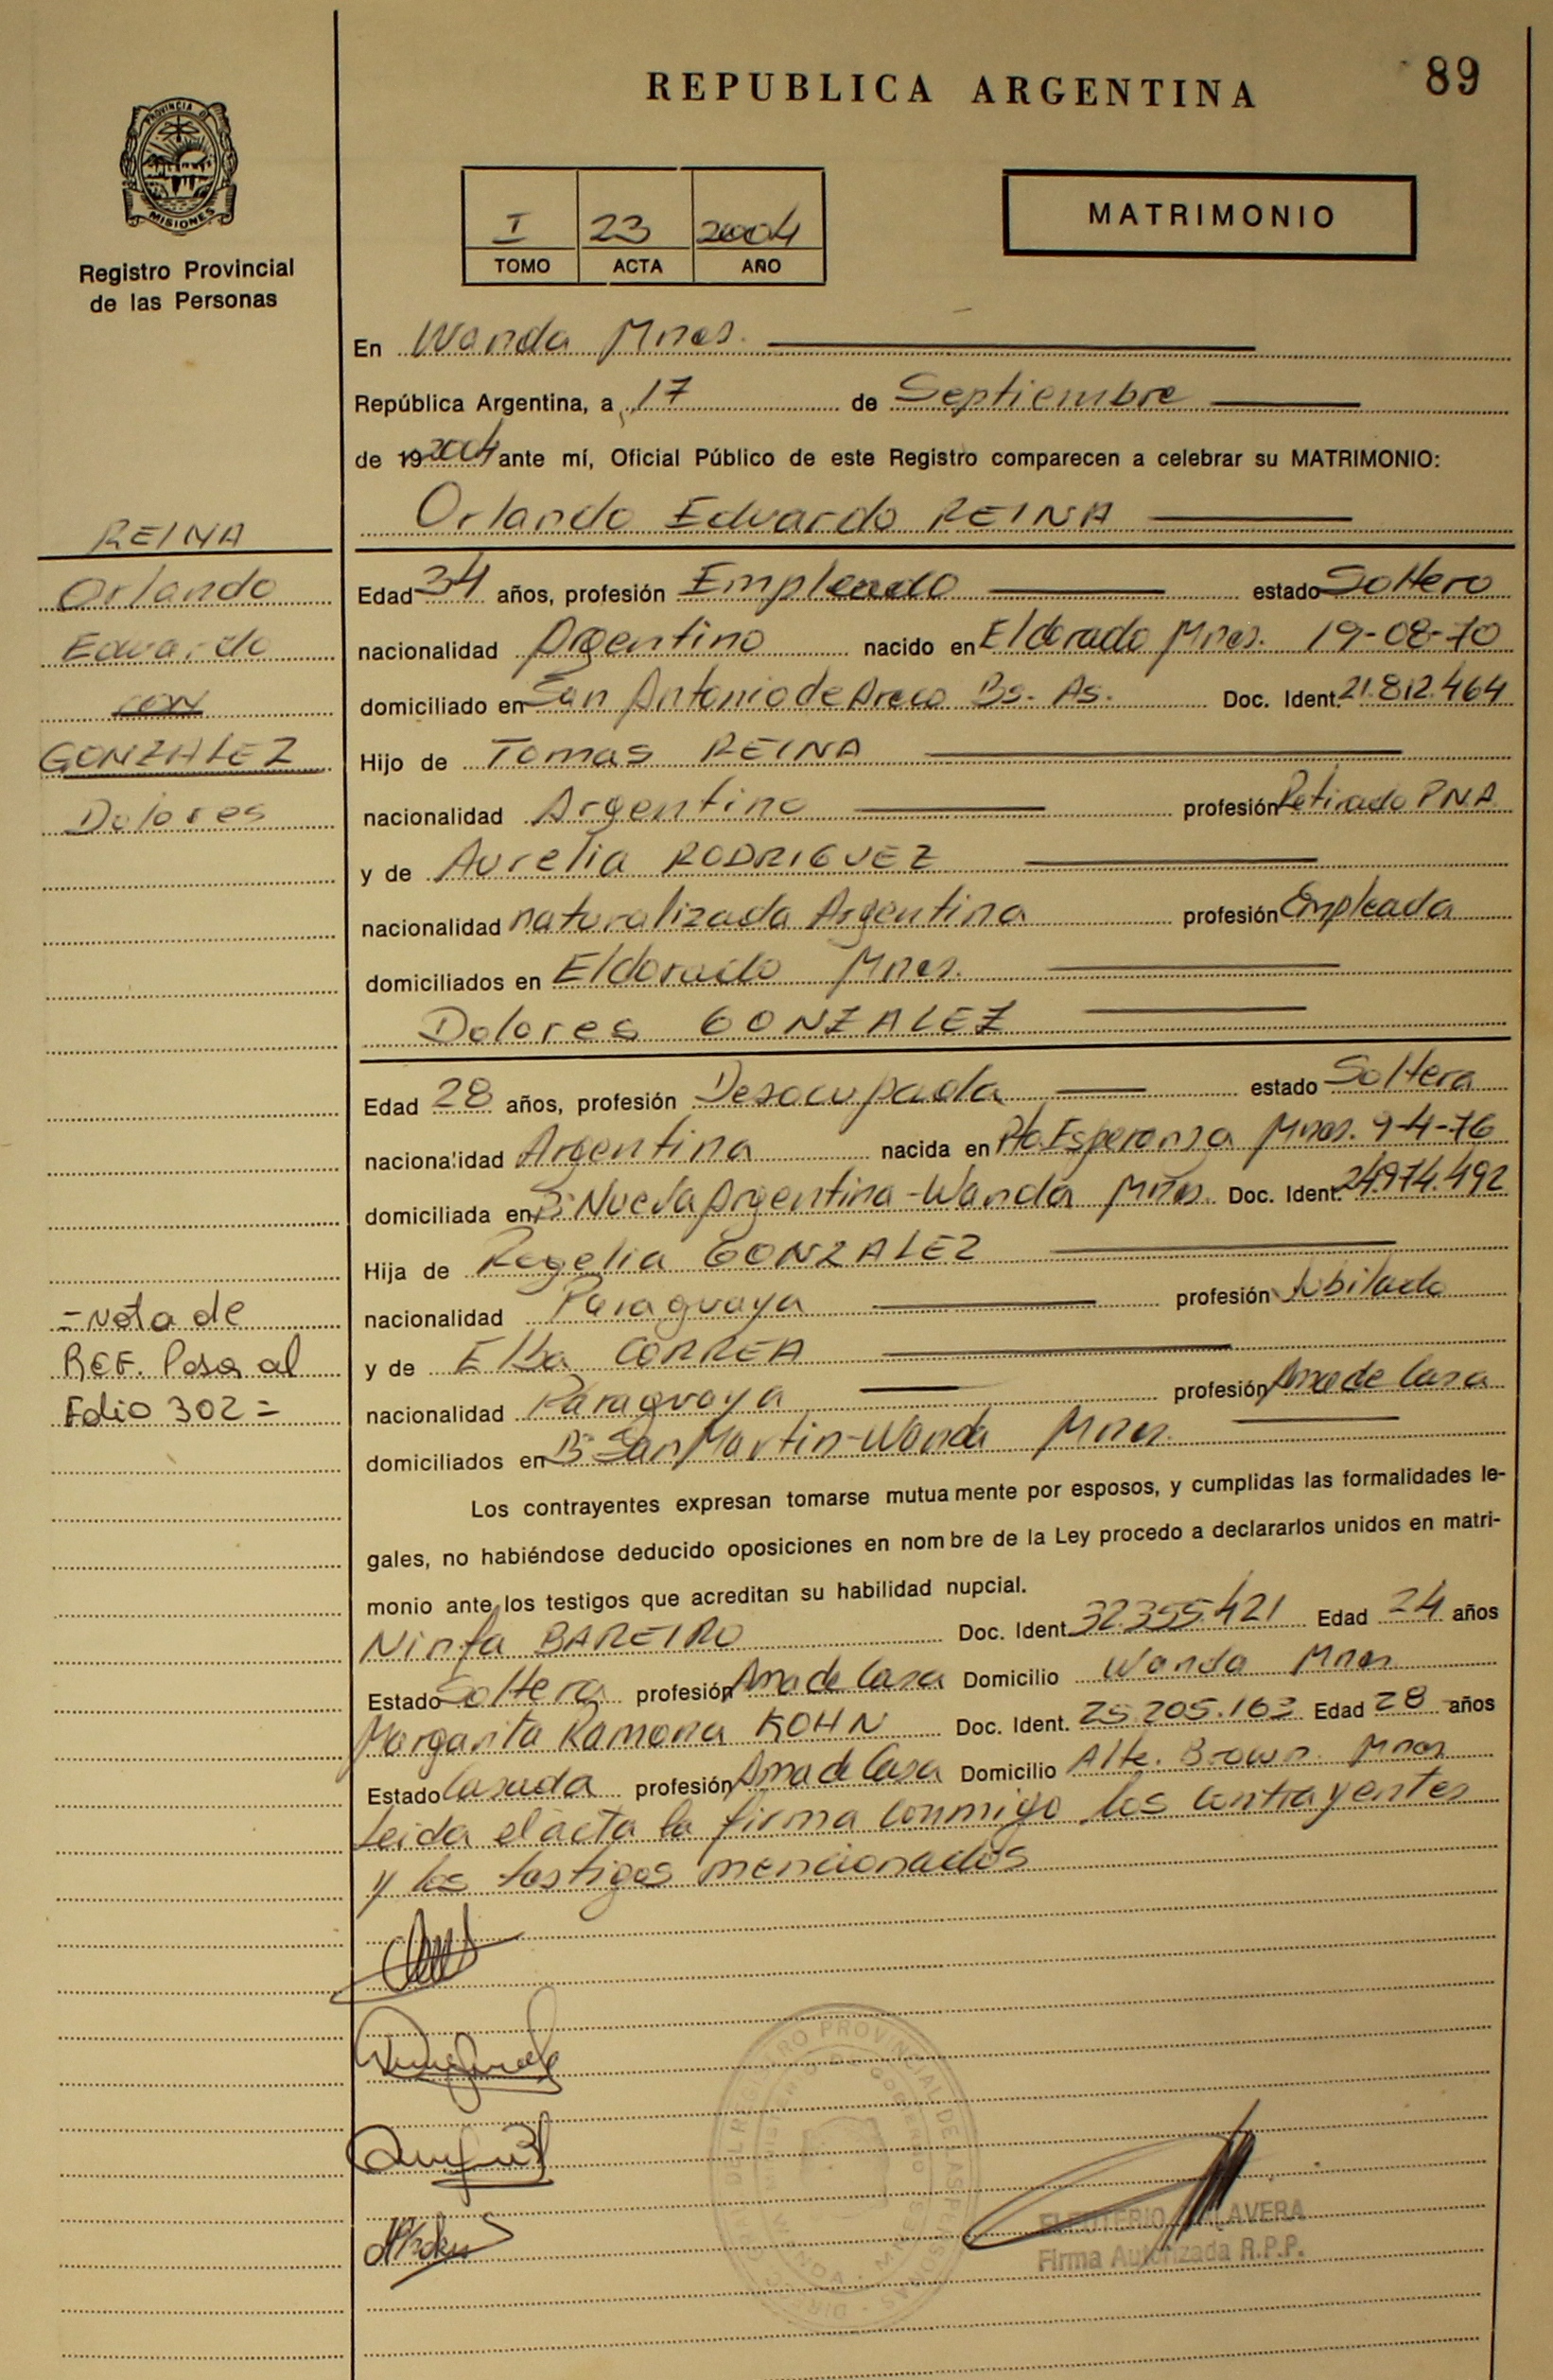 89
REPUBLICA ARGENTINA
PROVINCIA D
MISIONES
Registro Provincial
de las Personas
I 23 2004
TOMO ACTA AÑO
MATRIMONIO
En Wanda Mnes.
República Argentina, a 17 de Septiembre
de 19 2004 ante mí, Oficial Público de este Registro comparecen a celebrar su MATRIMONIO:
Orlando Eduardo REINA
REINA
Orlando
Eduardo
con
GONZALEZ
Dolores
Edad 34 años, profesión Empleado estado Soltero
nacionalidad Argentino nacido en Eldorado Mnes. 19-08-70
domiciliado en San Antonio de Areco Bs. As. Doc. Ident. 21.812.464
Hijo de Tomas REINA
nacionalidad Argentino profesión Retirado PNA
y de Aurelia RODRIGUEZ
nacionalidad naturalizada Argentina profesión Empleada
domiciliados en Eldorado Mnes.
Dolores GONZALEZ
Edad 28 años, profesión Desocupada estado Soltera
nacionalidad Argentina nacida en Pto. Esperanza Mnes. 9-4-76
domiciliada en B° Nueva Argentina - Wanda Mnes. Doc. Ident. 24.974.492
Hija de Rogelia GONZALEZ
nacionalidad Paraguaya profesión Jubilado
y de Elba CORREA
nacionalidad Paraguaya profesión Ama de Casa
domiciliados en B° San Martin - Wanda Mnes.
= Nota de
REF. Pasa al
Folio 302 =
Los contrayentes expresan tomarse mutuamente por esposos, y cumplidas las formalidades le-
gales, no habiéndose deducido oposiciones en nombre de la Ley procedo a declararlos unidos en matri-
monio ante los testigos que acreditan su habilidad nupcial.
Ninfa BAREIRO Doc. Ident. 32.355.421 Edad 24 años
Estado Soltera profesión Ama de Casa Domicilio Wanda Mnes.
Margarita Ramona KOHN Doc. Ident. 25.205.163 Edad 28 años
Estado Casada profesión Ama de Casa Domicilio Alte. Brown Mnes
Leida el acta la firma conmigo los contrayentes
y los testigos mencionados
REGISTRO PROVINCIAL DE LAS PERSONAS
MINISTERIO DE GOBIERNO
WANDA - MNES
ELEUTERIO TALAVERA
Firma Autorizada R.P.P.